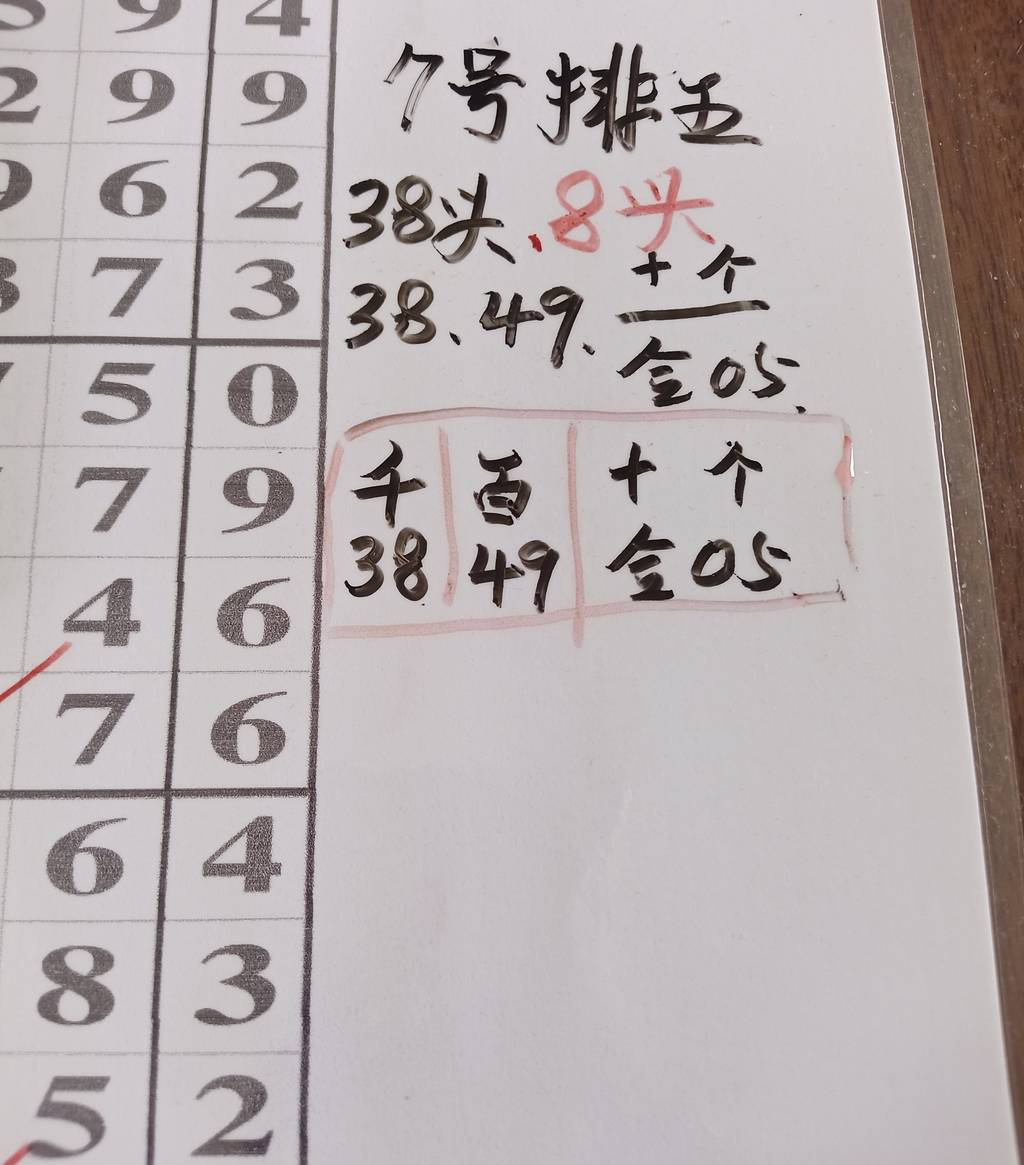 9 4
2 9 9
9 6 2
3 7 3
5 0
7 9
4 6
7 6
6 4
8 3
5 2
7号排五
38头.8头
38.49.十个
合05.
千 百 十 个
38 49 合05